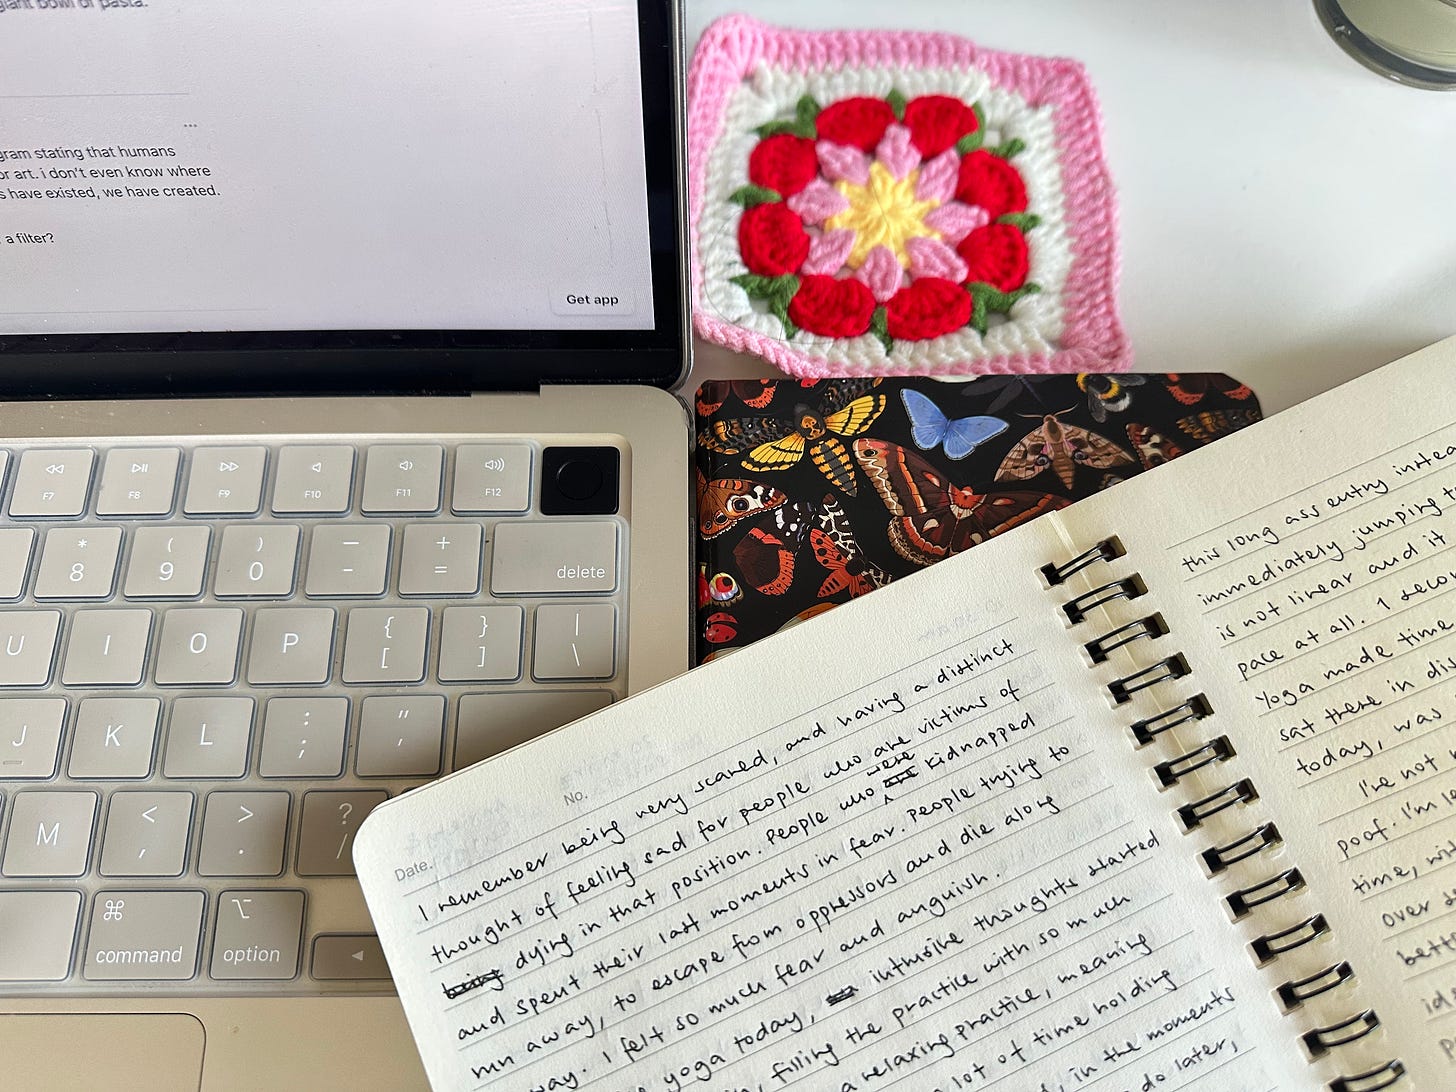 giant bowl of pasta.
...
gram stating that humans
or art. i don't even know where
s have existed, we have created.
a filter?
Get app
F7 F8 F9 F10 F11 F12
* ( ) — +
8 9 0 - = delete
U I O P { } |
[ ] \
J K L : "
; '
M < > ?
, . /
⌘ ⌥
command option
No.
Date.
I remember being very scared, and having a distinct
thought of feeling sad for people who are victims of
being dying in that position. People who were kidnapped
and spent their last moments in fear. People trying to
run away, to escape from oppressors and die along
way. I felt so much fear and anguish.
yoga today, intrusive thoughts started
, filling the practice with so much
a relaxing practice, meaning
a lot of time holding
, in the moments
do later,
this long ass entry instea
immediately jumping t
is not linear and it
pace at all. 1 secon
Yoga made time
sat there in dis
today, was
I've not
poof. I'm le
time, wit
over th
bette
id